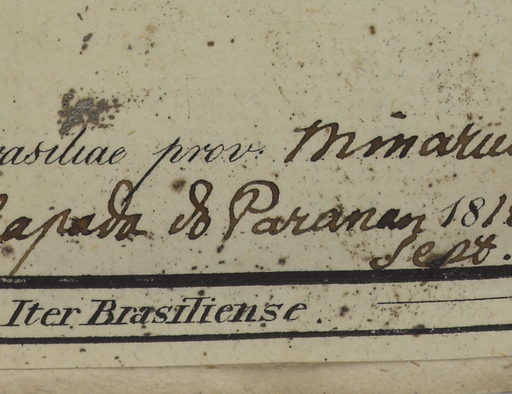 rasiliae prov. Minarum
hapada do Paranan 1818
Sept.
Iter Brasiliense.